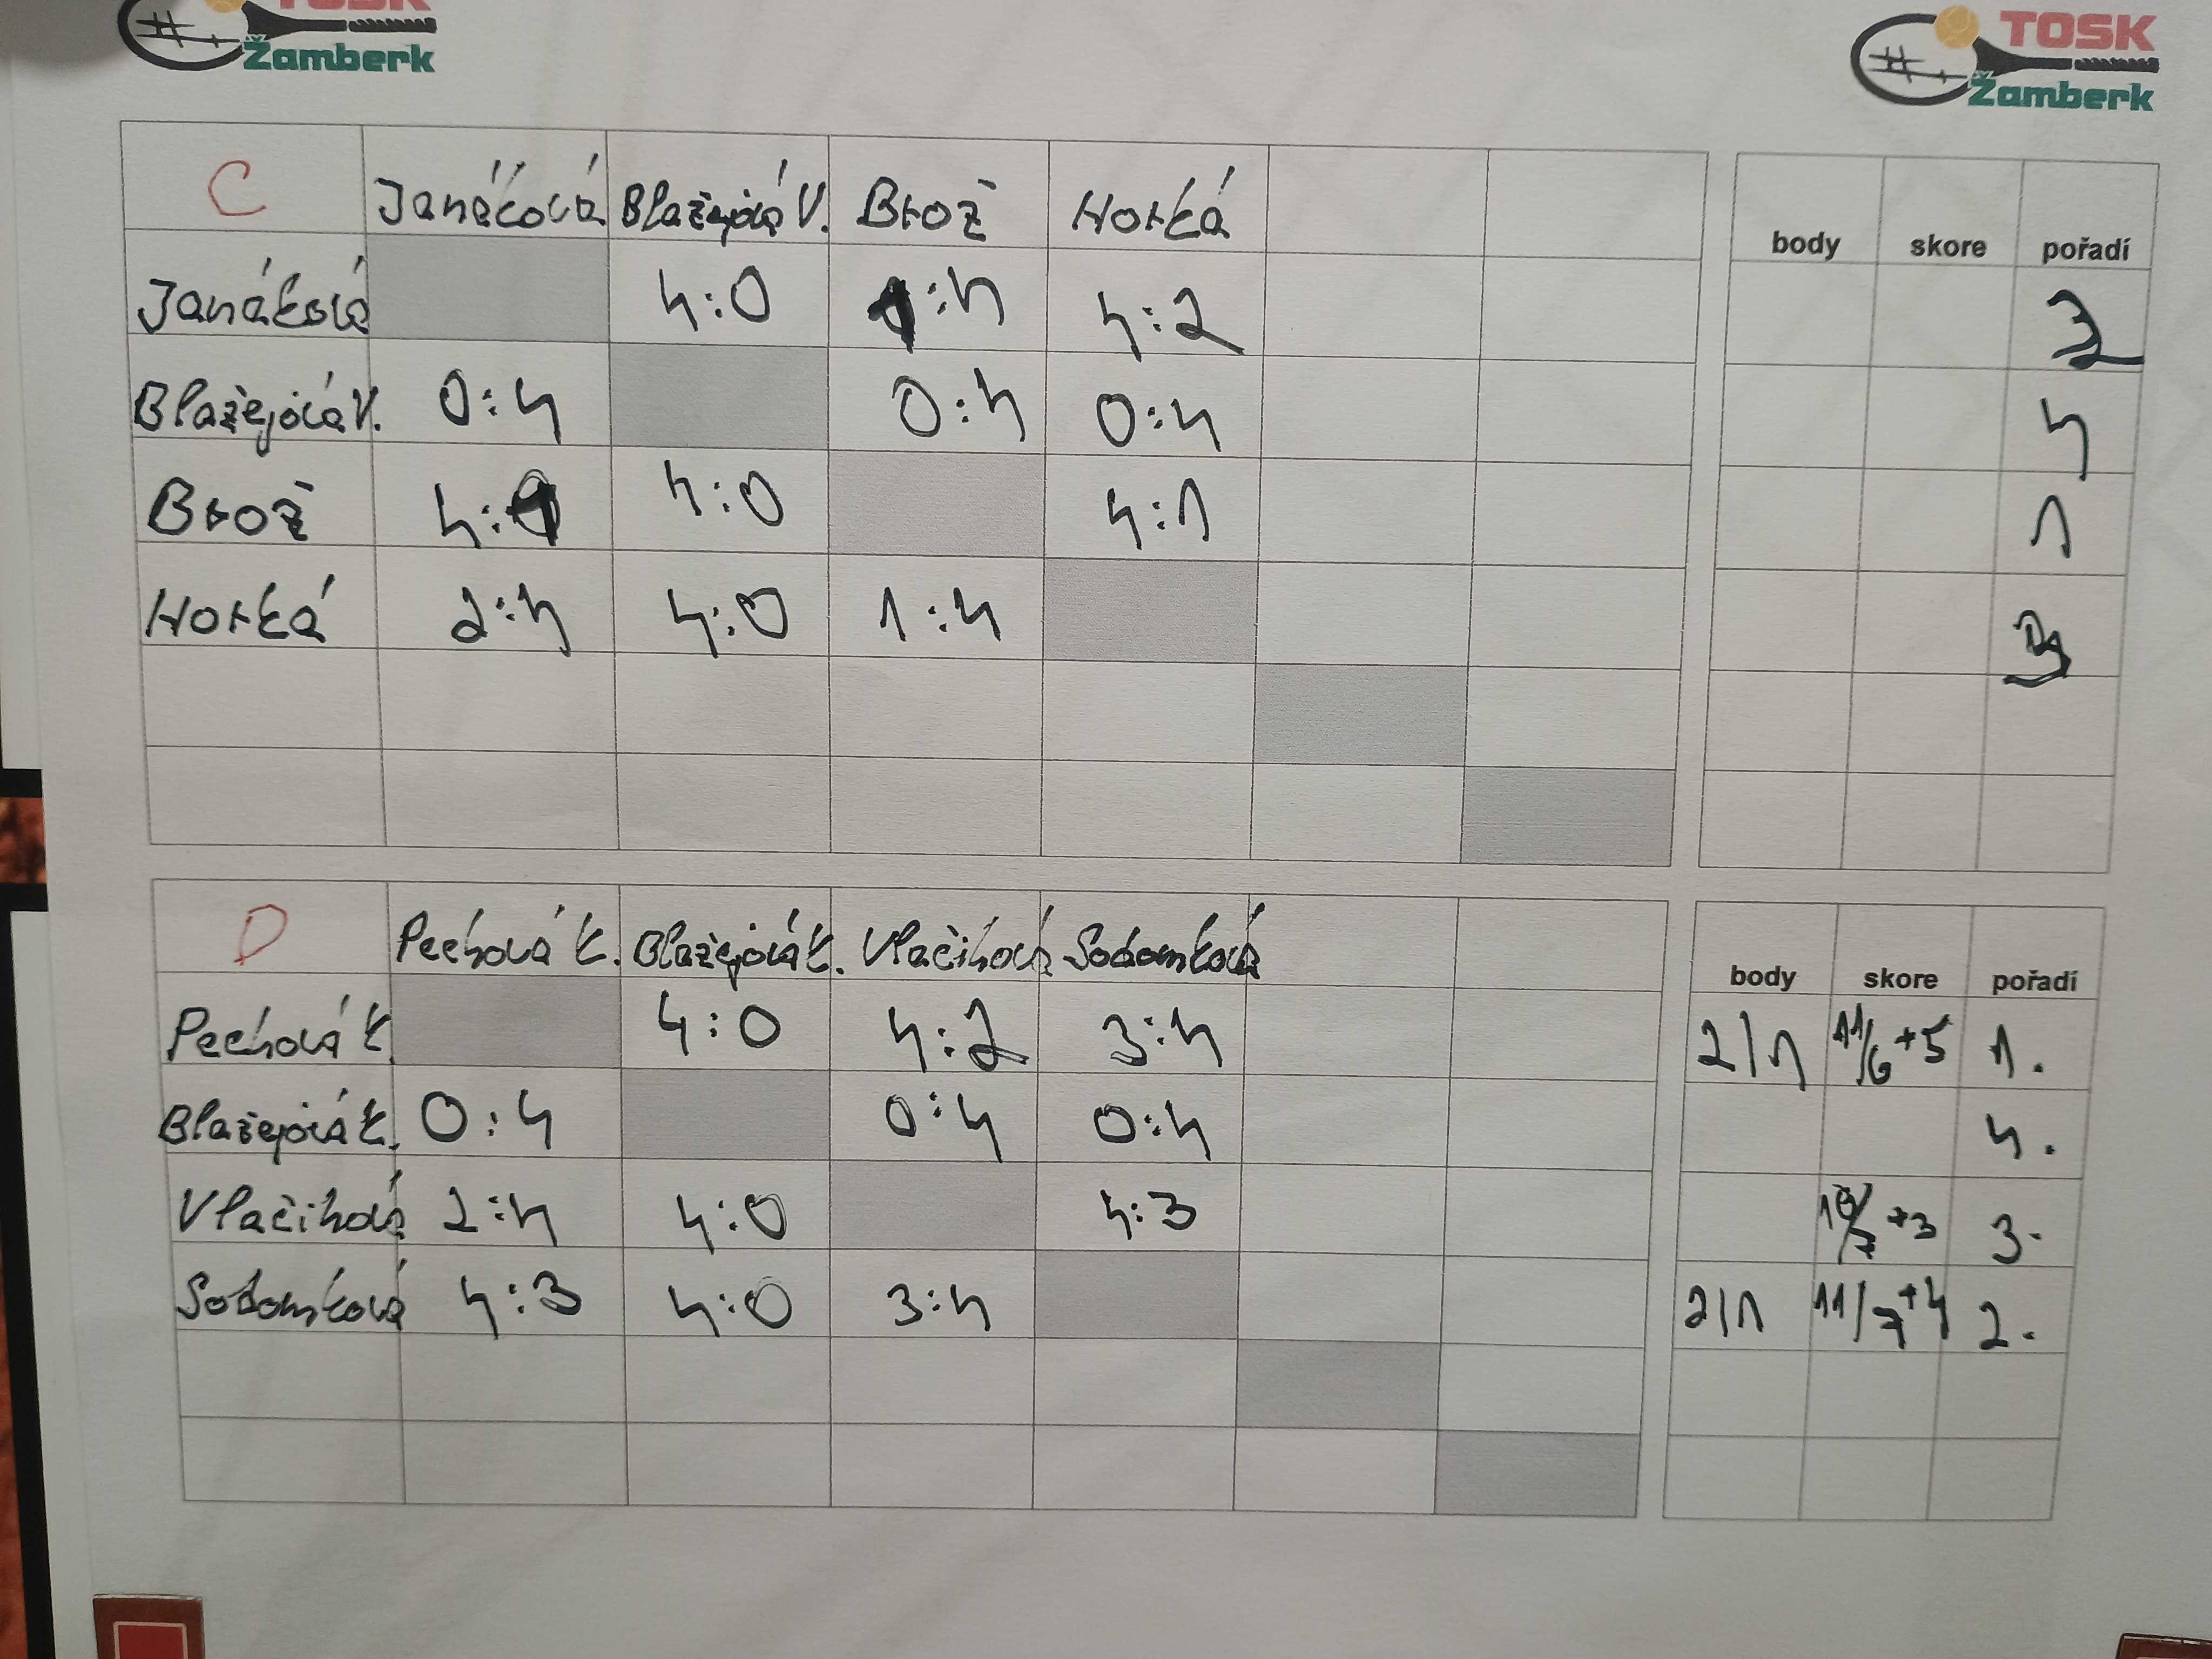 TOSK
Žamberk
TOSK
Žamberk
C Janáková Blažejová V. Brož Horká
body skore pořadí
Janáková 4:0 1:4 4:2 2
Blažejová V. 0:4 0:4 0:4 4
Brož 4:1 4:0 4:1 1
Horká 2:4 4:0 1:4 3
D Pechová K. Blažejová K. Vlačihová Sodomková
body skore pořadí
Pechová K. 4:0 4:2 3:4 2/1 11/6 +5 1.
Blažejová K. 0:4 0:4 0:4 4.
Vlačihová 2:4 4:0 4:3 10/7 +3 3.
Sodomková 4:3 4:0 3:4 2/1 11/7 +4 2.